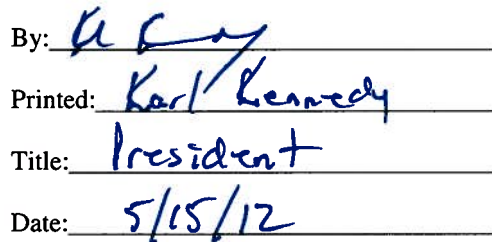 By:
Printed: Karl Kennedy
Title: President
Date: 5/15/12